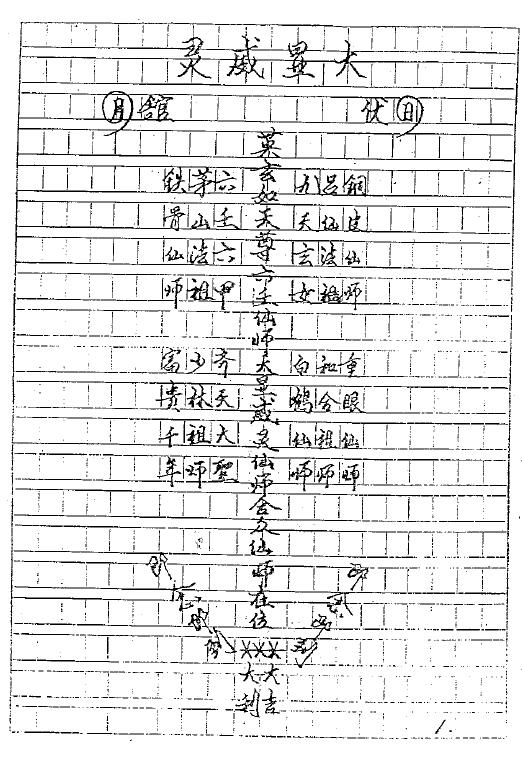 大显威灵
伏日
舘月
铜皮仙师
吕仙法祖
九天玄女
重眼仙师
和合祖师
白鹤仙师
英玄如天尊六壬仙师大显威灵仙师合众仙师在位
六壬六甲
茅山法祖
铁骨仙师
齐天大聖
少林祖师
富贵千年
×××
大吉
大利
1.